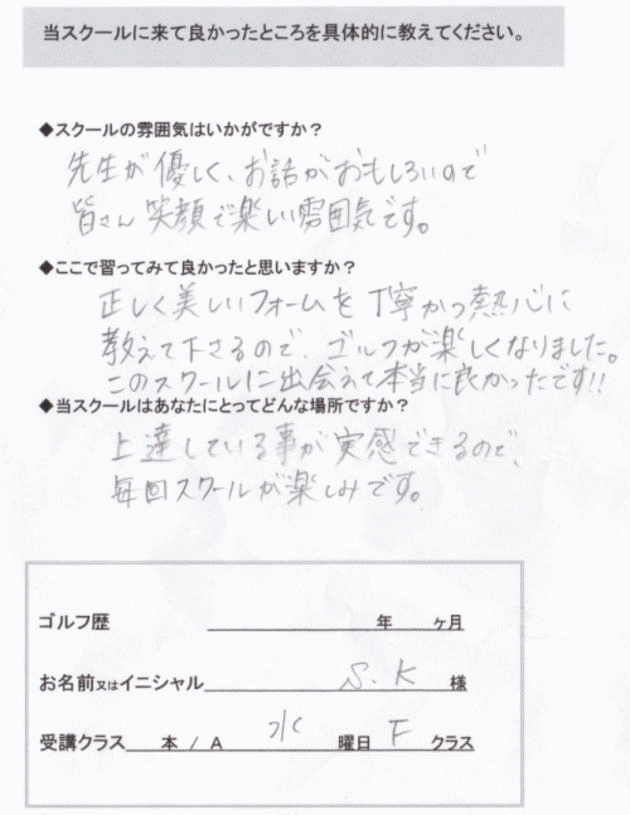 当スクールに来て良かったところを具体的に教えてください。
◆スクールの雰囲気はいかがですか？
先生が優しく、お話がおもしろいので
皆さん笑顔で楽しい雰囲気です。
◆ここで習ってみて良かったと思いますか？
正しく美しいフォームを丁寧かつ熱心に
教えて下さるので、ゴルフが楽しくなりました。
このスクールに出会えて本当に良かったです!!
◆当スクールはあなたにとってどんな場所ですか？
上達している事が実感できるので、
毎回スクールが楽しみです。
ゴルフ歴 年 ヶ月
お名前又はイニシャル S.K 様
受講クラス 本 / A 水 曜日 F クラス